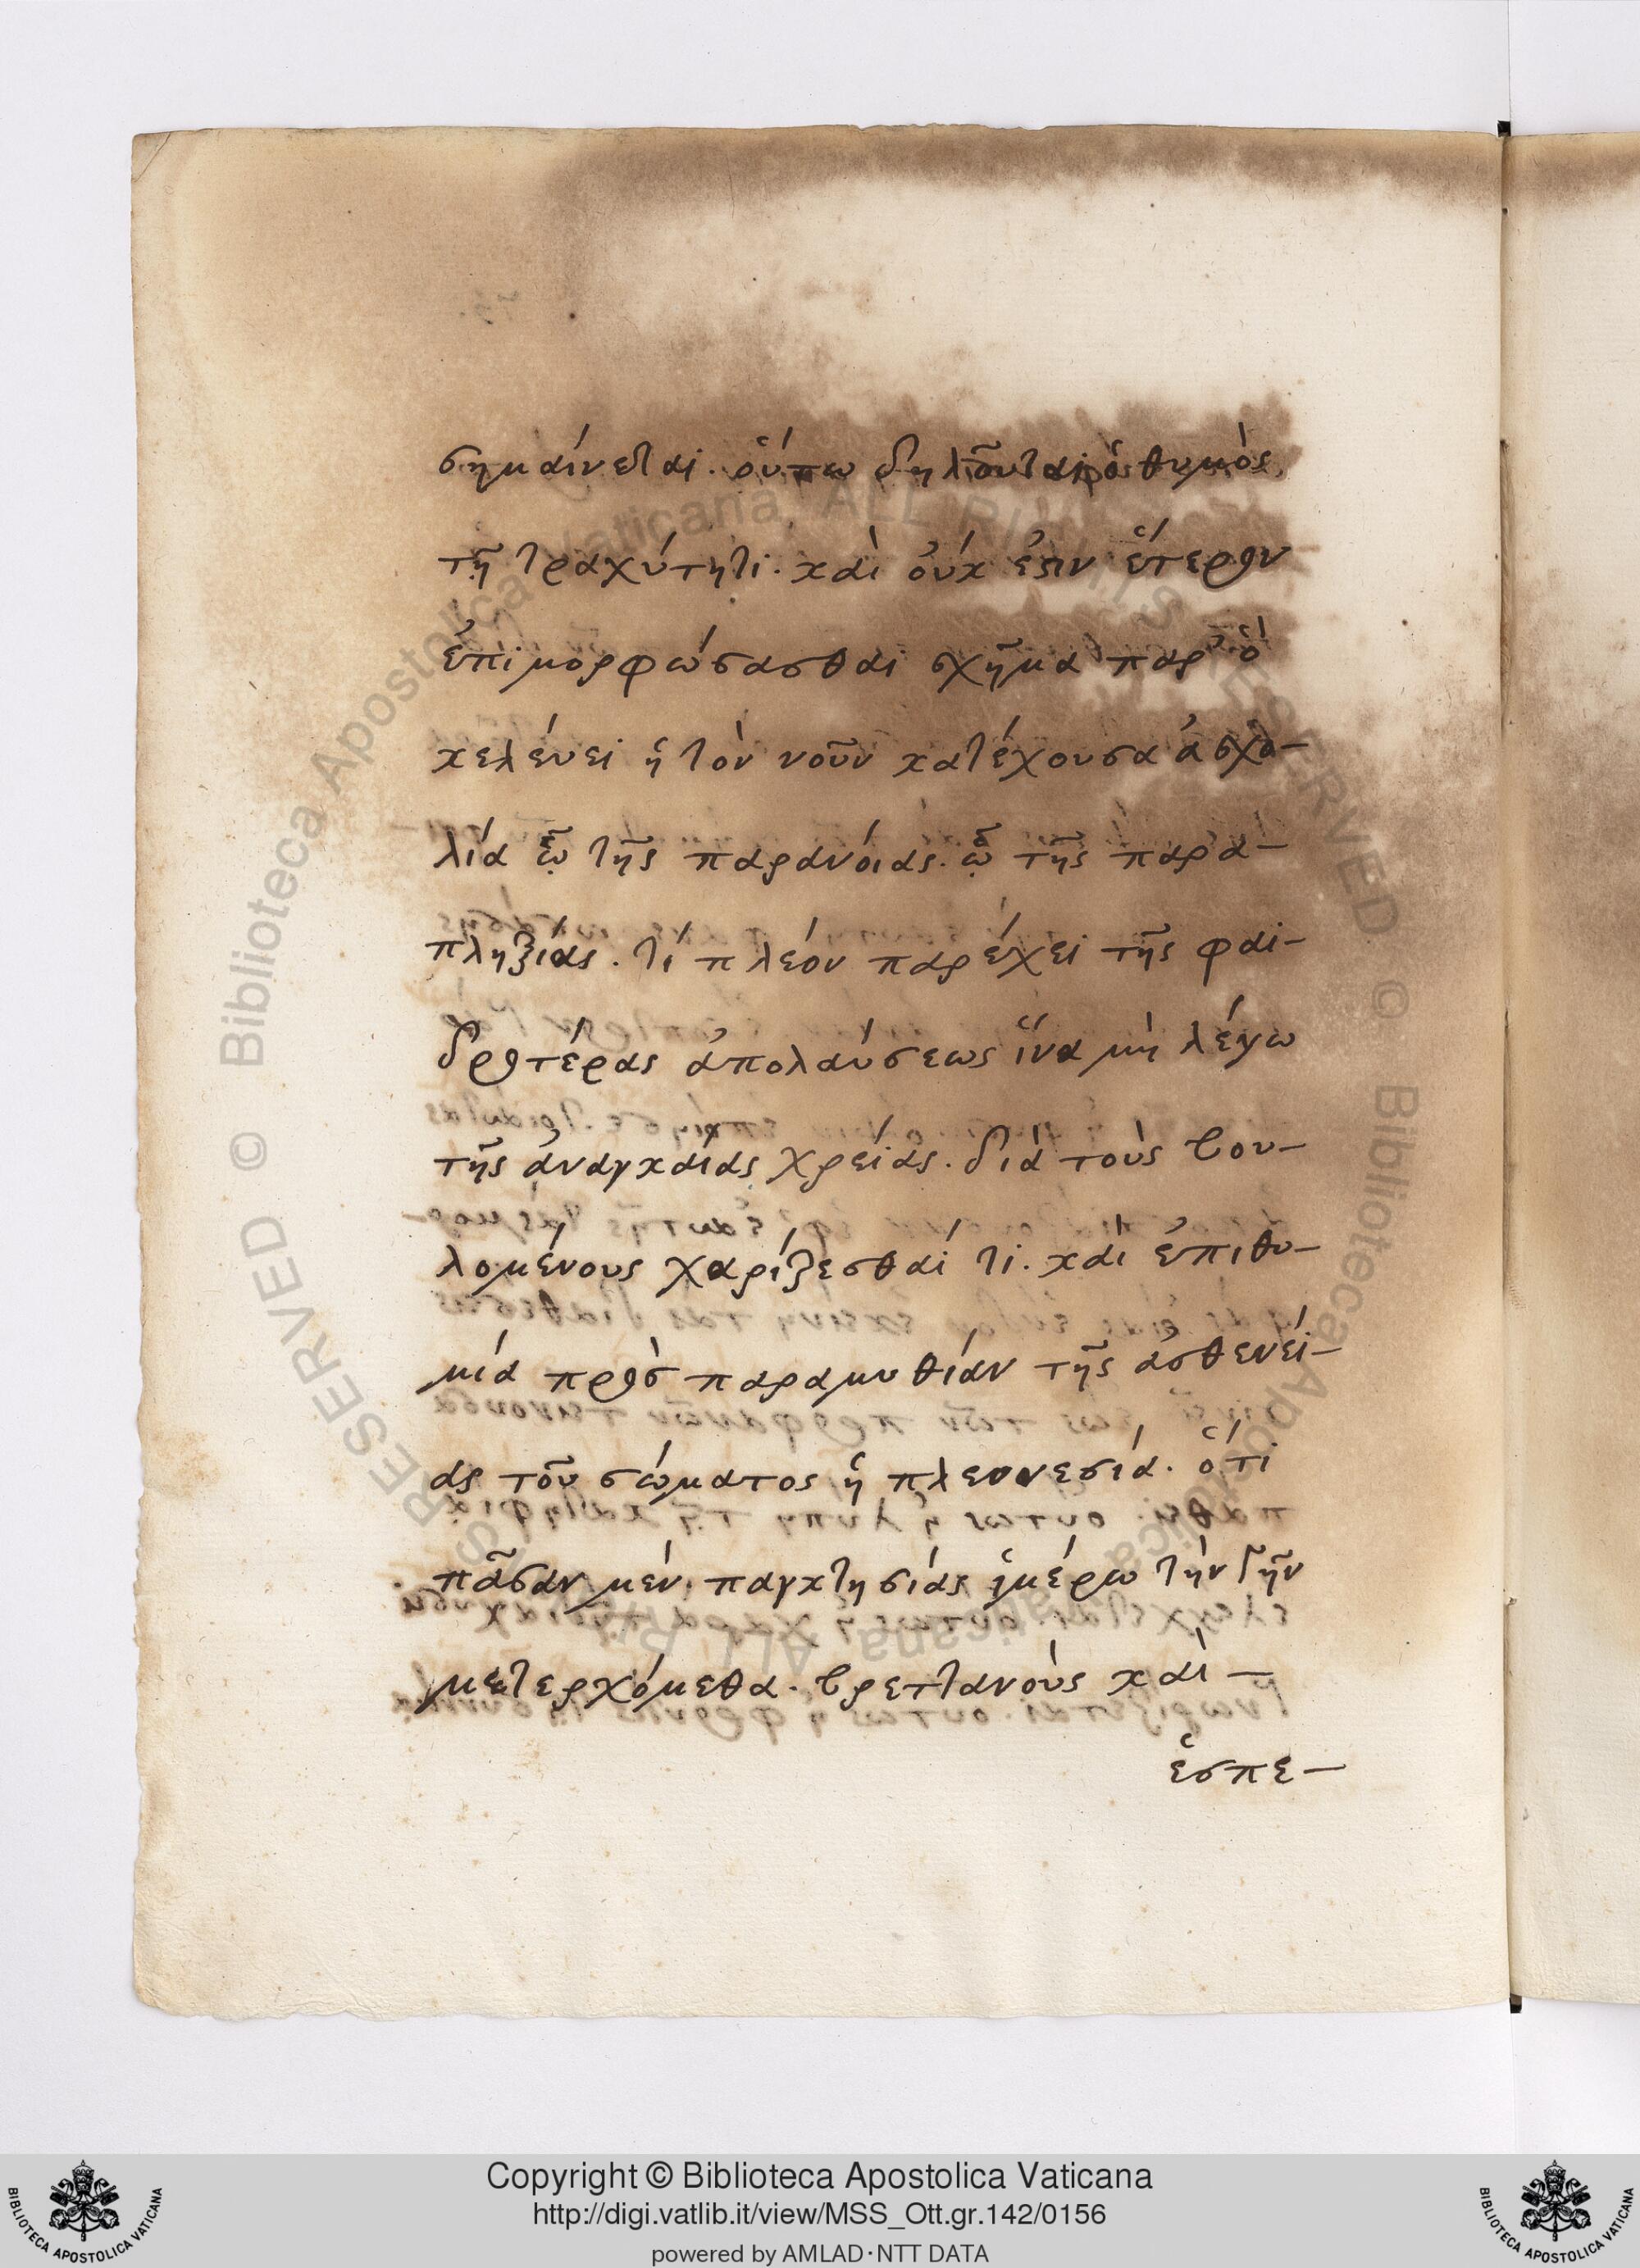 σημαίνεται. οὕπω δηλοῦται ὁ θυμὸς
τῇ τραχύτητι. καὶ οὐκ ἔστιν ἕτερον
ἐπιμορφώσασθαι σχῆμα παρ' ὅ
κελέυει ἡ τὸν νοῦν κατέχουσα ἀσχο-
λία ὦ τῆς παρανόιας. ὦ τῆς παρα-
πληξίας. τί πλέον παρέχει τῆς φαι-
δροτέρας ἀπολαύσεως ἵνα μὴ λέγω
τῆς ἀναγκάιας χρείας. διὰ τοὺς βου-
λομένους χαρίζεσθαί τι. καὶ ἐπιθυ-
μία πρὸσ παραμυθίαν τῆς ἀσθενεί-
ας τοῦ σώματος ἡ πλεονεσία. ὅτι
πᾶσαν μὲν. παγκτησίας ἱμέρω τὴν γῆν
μετερχόμεθα. βρεττανοὺς καὶ –
ἑσπε-
© Biblioteca Apostolica Vaticana, ALL RIGHTS RESERVED
© Biblioteca Apostolica Vaticana ALL RIGHTS RESERVED
Copyright © Biblioteca Apostolica Vaticana
http://digi.vatlib.it/view/MSS_Ott.gr.142/0156
powered by AMLAD·NTT DATA
BIBLIOTECA APOSTOLICA VATICANA
BIBLIOTECA APOSTOLICA VATICANA